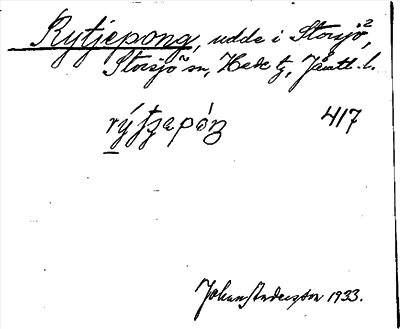 Rytjepong, udde i Storsjö²,
Storsjö sn, Hede tg, Jämtl. l.
417
Johan Anderzon 1933.